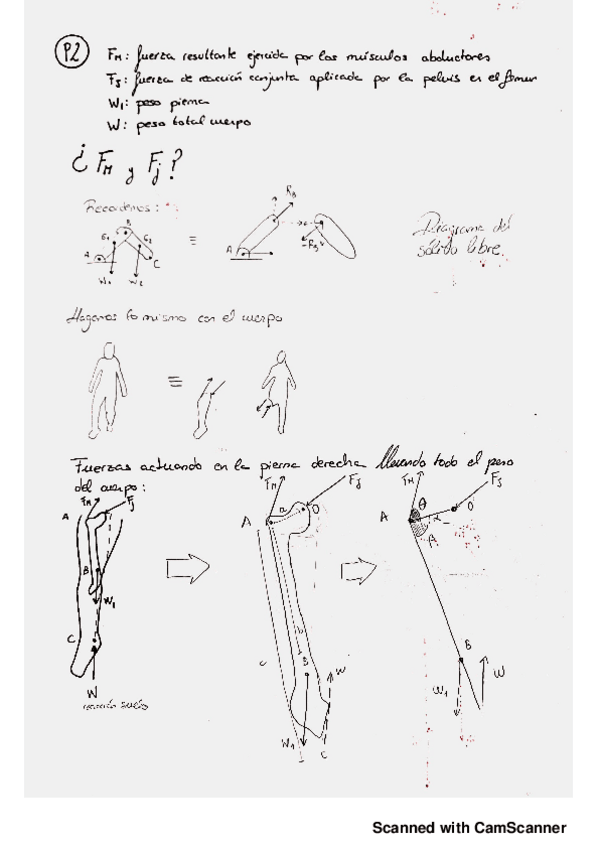 P2 FM: fuerza resultante ejercida por los músculos abductores
FJ: fuerza de reacción conjunta aplicada por la pelvis en el femur
W1: peso pierna
W: peso total cuerpo
¿ FM y FJ ?
Recordemos:
RB
B
G1
G2
A
C
W1
W2
≡
A
-RB
Diagrama del
sólido libre.
Hagamos lo mismo con el cuerpo
≡
Fuerzas actuando en la pierna derecha llevando todo el peso
del cuerpo:
FM
FJ
A
B
W1
C
W
reacción suelo
FM
FJ
A
a
O
b
B
c
W
W1
C
FM
FJ
θ
O
A
α
β
B
W1
W
Scanned with CamScanner